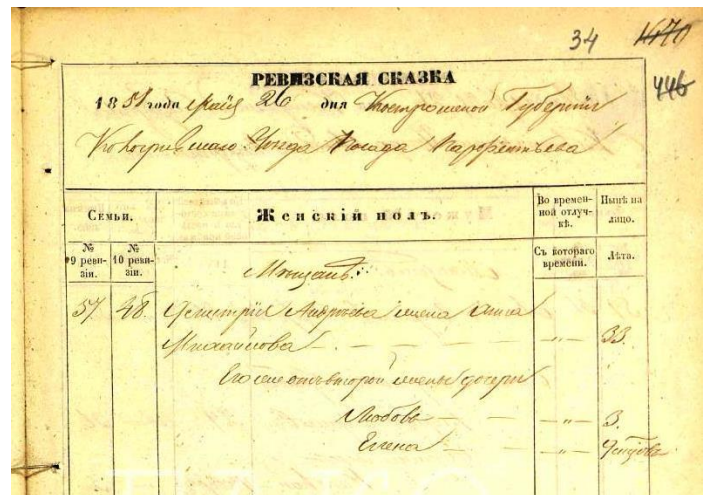 34 1170
446
РЕВИЗСКАЯ СКАЗКА
1858 года Мая 26 дня Костромской Губернии
Кологривскаго Уезда Посада Парфентьева
Семьи.
Женскій полъ.
Во времен-
ной отлуч-
кѣ.
Нынѣ на
лицо.
№
9 реви-
зіи.
№
10 реви-
зіи.
Съ котораго
времени.
Лѣта.
Мещанъ:
57 48. Дмитрія Андреева жена Анна
Михайлова - - - - -„- 33.
Его же отъ второй жены дочери
Любовь - - -„- 3.
Елена - - -„-